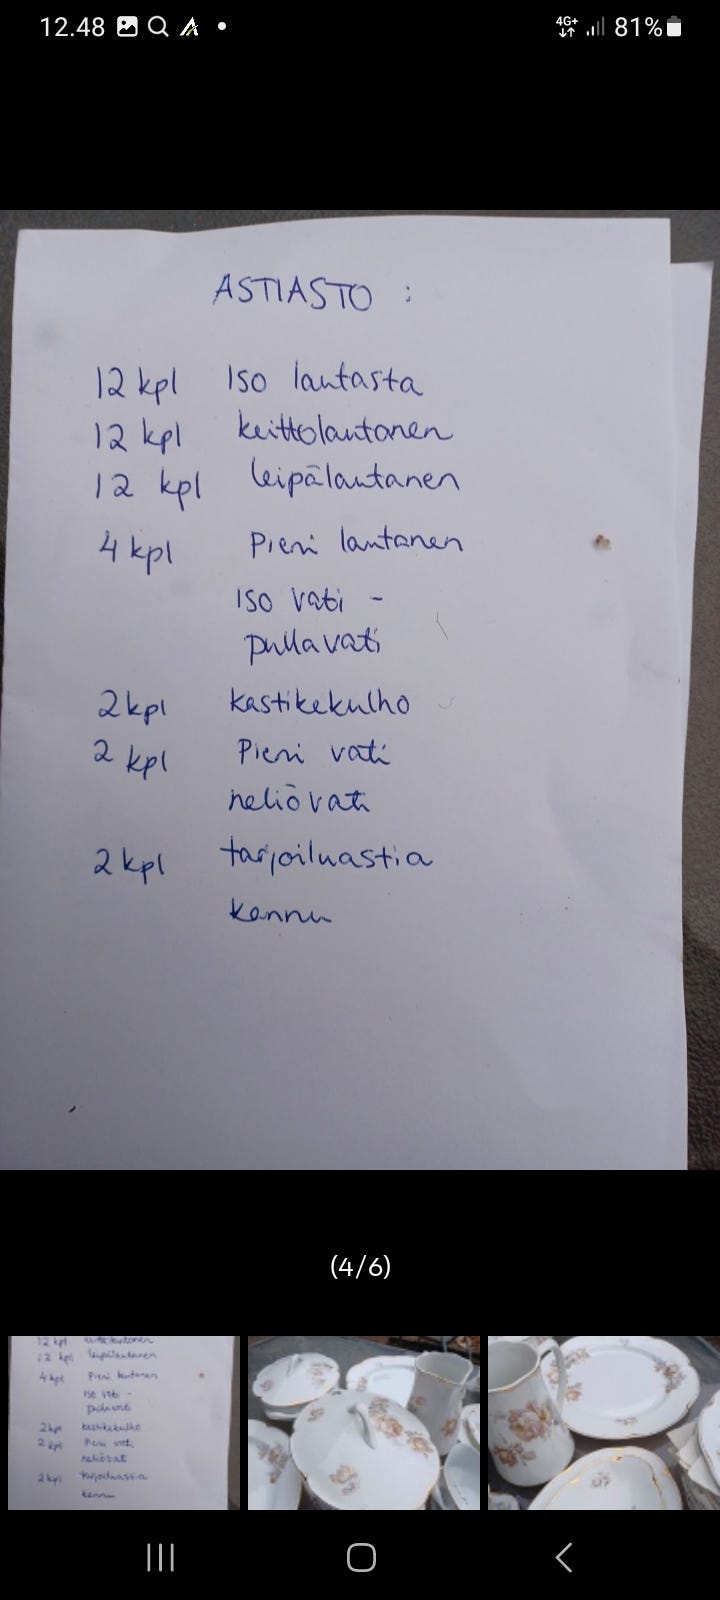 12.48
4G+
81%
ASTIASTO :
12 kpl Iso lautasta
12 kpl keittolautanen
12 kpl leipälautanen
4 kpl Pieni lautanen
Iso vati -
pullavati
2 kpl kastikekulho
2 kpl Pieni vati
neliövati
2 kpl tarjoiluastia
kannu
(4/6)
12 kpl keittolautanen
12 kpl leipälautanen
4 kpl Pieni lautanen
Iso vati -
pullavati
2 kpl kastikekulho
2 kpl Pieni vati
neliövati
2 kpl tarjoiluastia
kannu